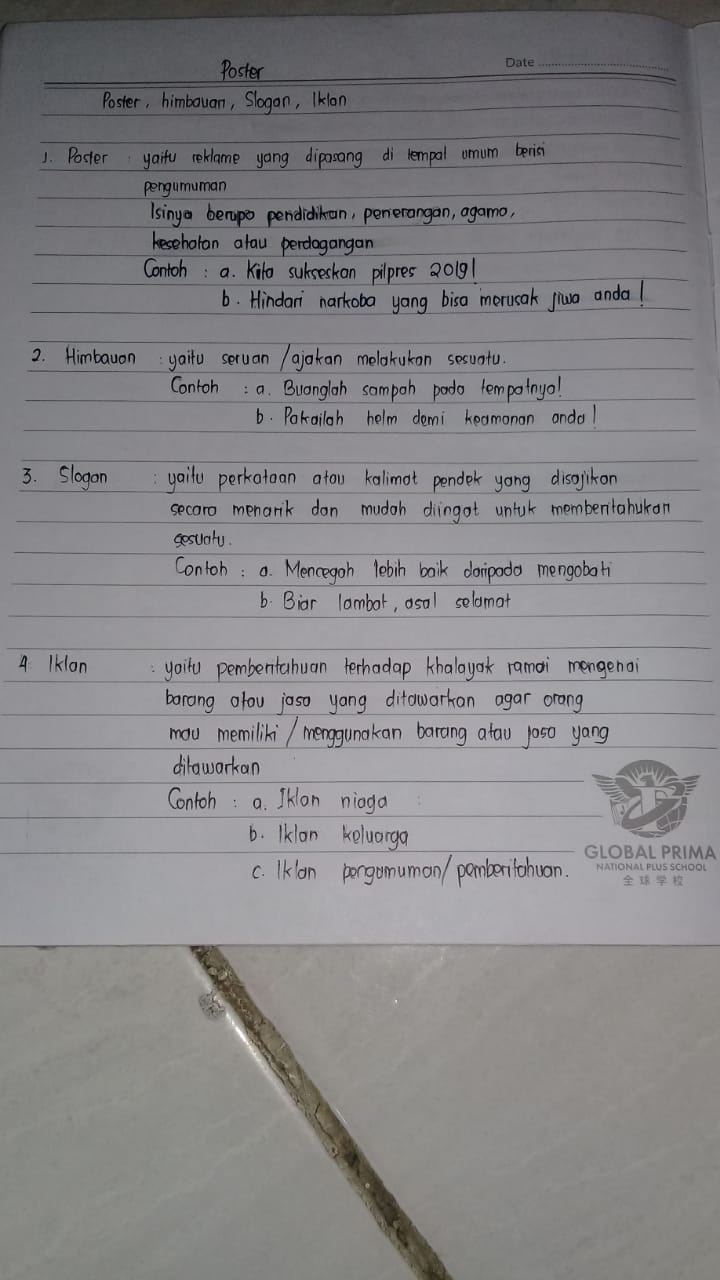 Poster
Date
Poster, himbauan, Slogan, Iklan
1. Poster : yaitu reklame yang dipasang di tempat umum berisi
pengumuman
Isinya berupa pendidikan, penerangan, agama,
kesehatan atau perdagangan
Contoh : a. Kita sukseskan pilpres 2019!
b. Hindari narkoba yang bisa merusak jiwa anda!
2. Himbauan : yaitu seruan /ajakan melakukan sesuatu.
Contoh : a. Buanglah sampah pada tempatnya!
b. Pakailah helm demi keamanan anda!
3. Slogan : yaitu perkataan atau kalimat pendek yang disajikan
secara menarik dan mudah diingat untuk memberitahukan
sesuatu.
Contoh : a. Mencegah lebih baik daripada mengobati
b. Biar lambat, asal selamat
4 Iklan : yaitu pemberitahuan terhadap khalayak ramai mengenai
barang atau jasa yang ditawarkan agar orang
mau memiliki / menggunakan barang atau jasa yang
ditawarkan
Contoh : a. Iklan niaga
b. Iklan keluarga
c. Iklan pengumuman/pemberitahuan.
GLOBAL PRIMA
NATIONAL PLUS SCHOOL
全球学校